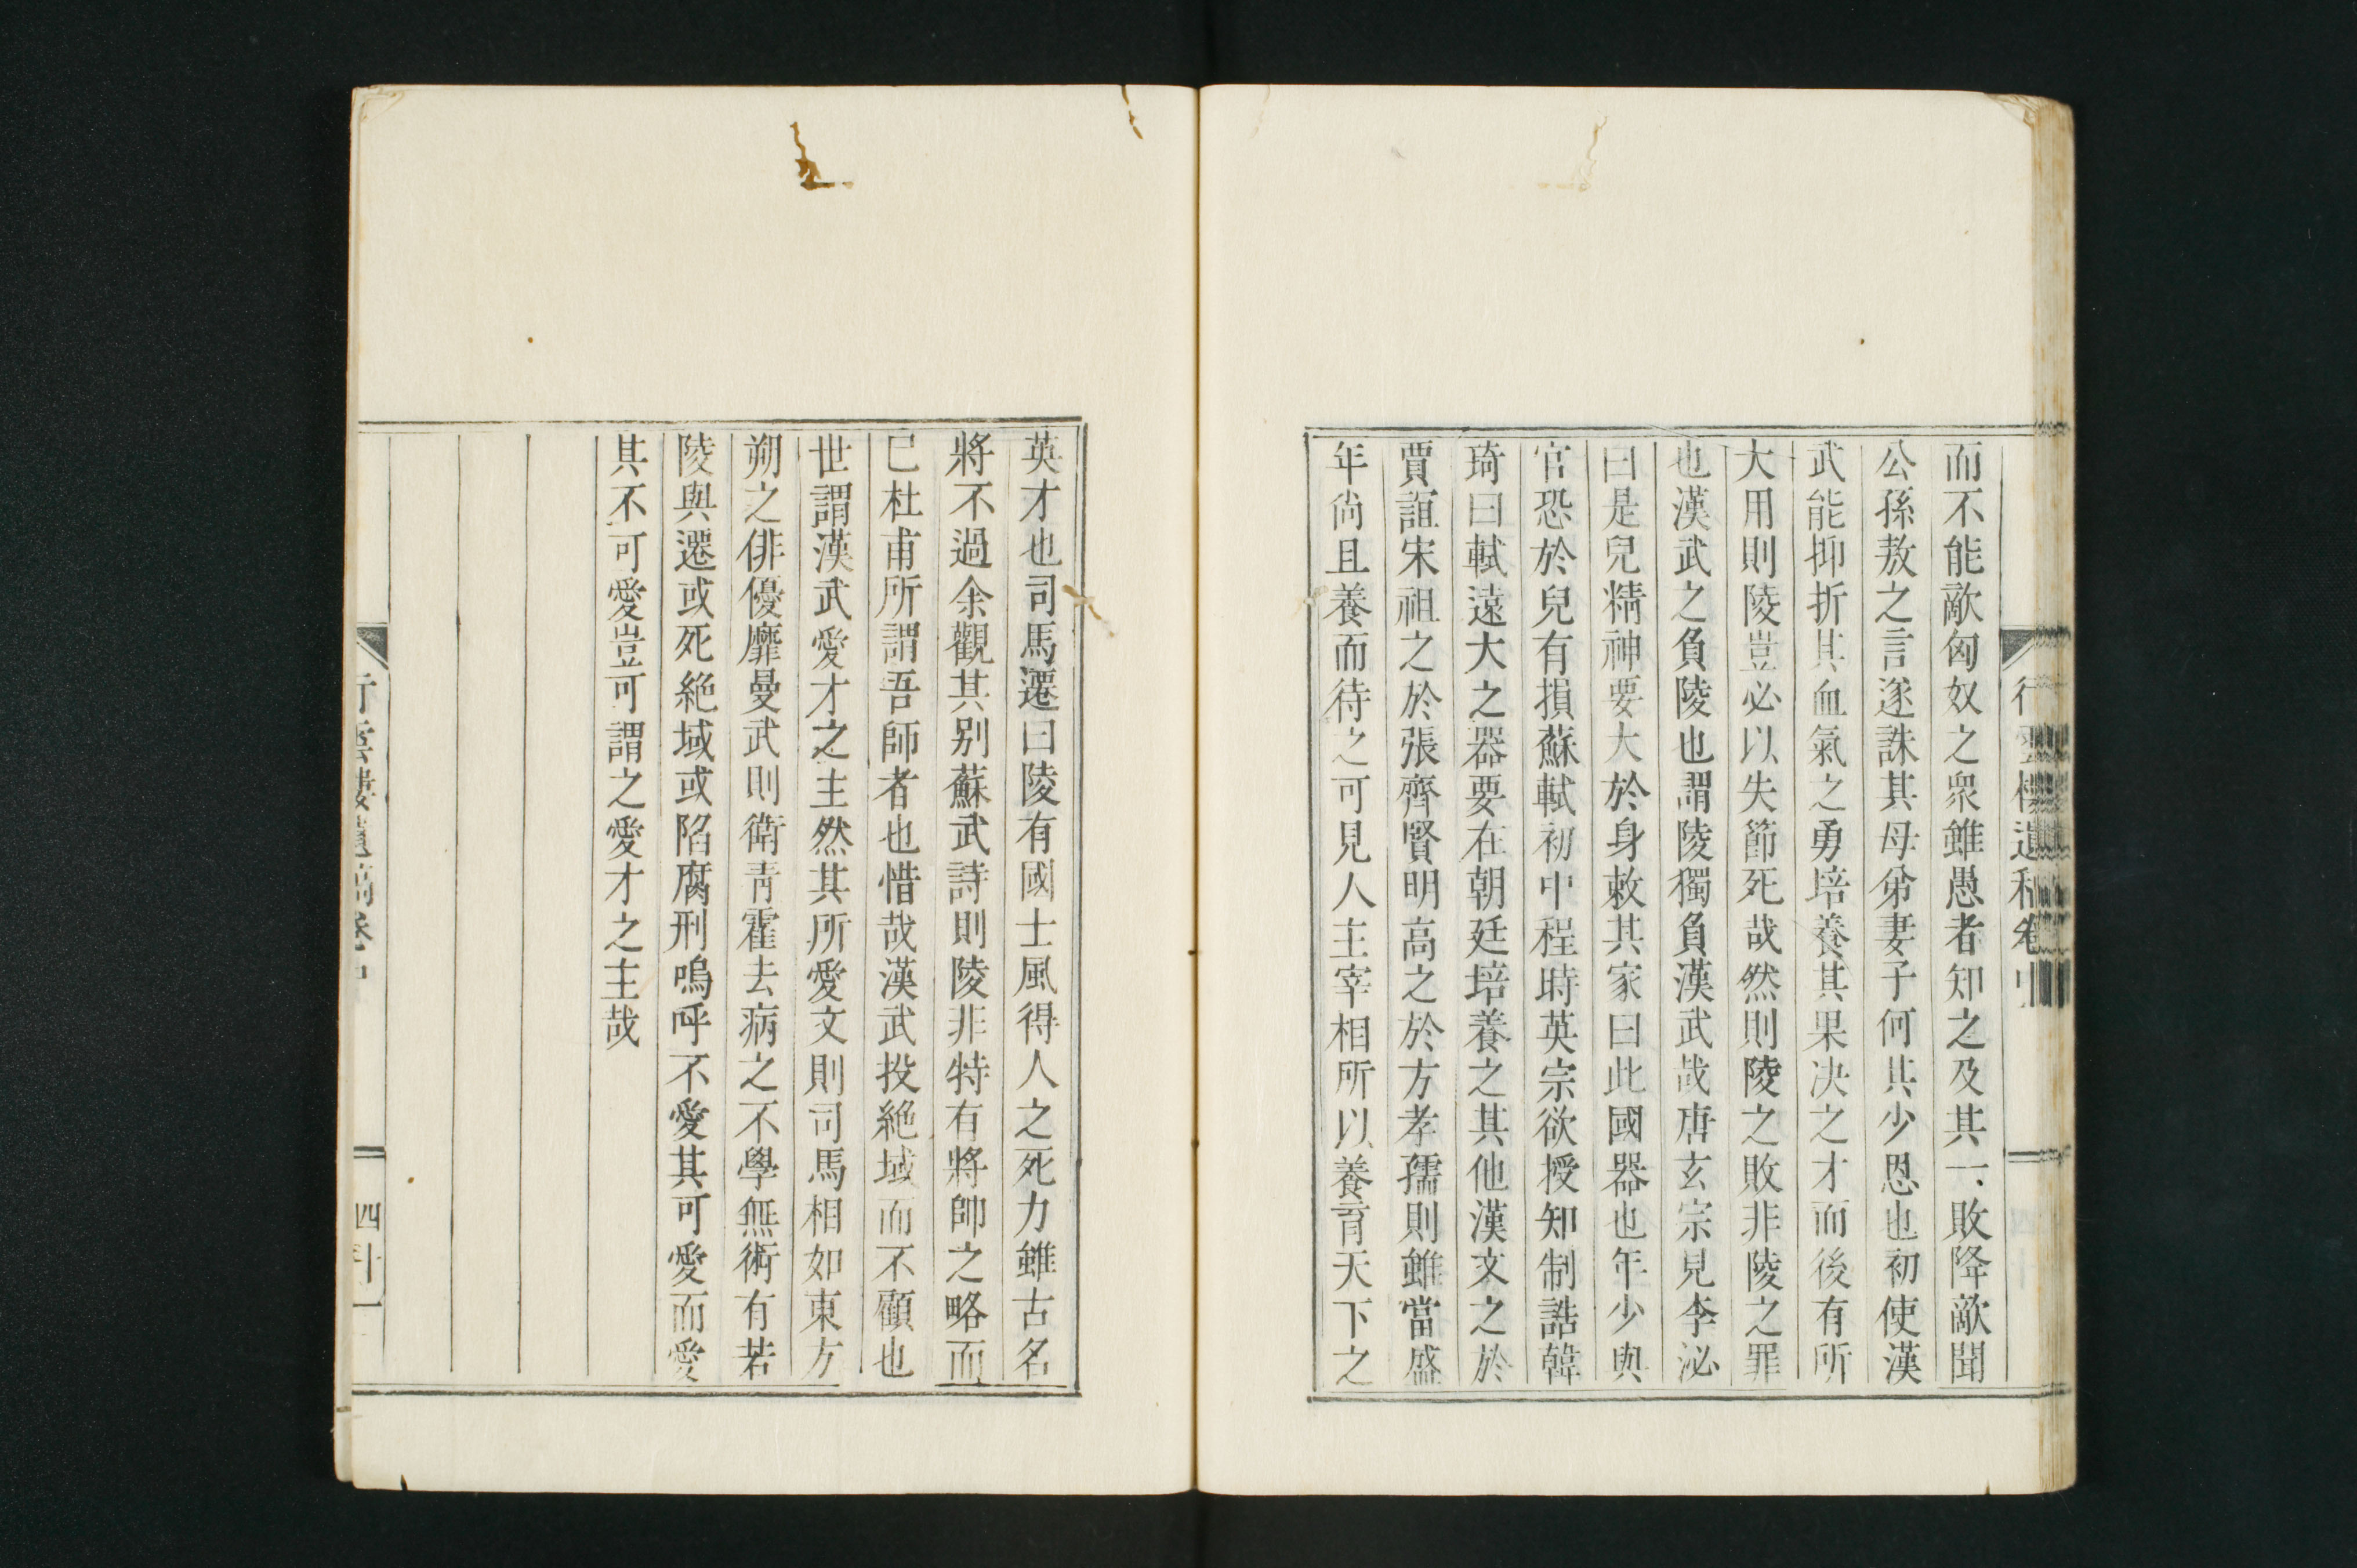 行雲樓遺稿卷中
而不能敵匈奴之衆雖愚者知之及其一敗降敵聞
公孫敖之言遂誅其母弟妻子何其少恩也初使漢
武能抑折其血氣之勇培養其果决之才而後有所
大用則陵豈必以失節死哉然則陵之敗非陵之罪
也漢武之負陵也謂陵獨負漢武哉唐玄宗見李泌
曰是兒精神要大於身敕其家曰此國器也年少與
官恐於兒有損蘇軾初中程時英宗欲授知制誥韓
琦曰軾遠大之器要在朝廷培養之其他漢文之於
賈誼宋祖之於張齊賢明高之於方孝孺則雖當盛
年尙且養而待之可見人主宰相所以養育天下之
英才也司馬遷曰陵有國士風得人之死力雖古名
將不過余觀其别蘇武詩則陵非特有將帥之略而
已杜甫所謂吾師者也惜哉漢武投絶域而不顧也
世謂漢武愛才之主然其所愛文則司馬相如東方
朔之俳優靡曼武則衛靑霍去病之不學無術有若
陵與遷或死絶域或陷腐刑嗚呼不愛其可愛而愛
其不可愛豈可謂之愛才之主哉
行雲樓遺稿卷中
四十一